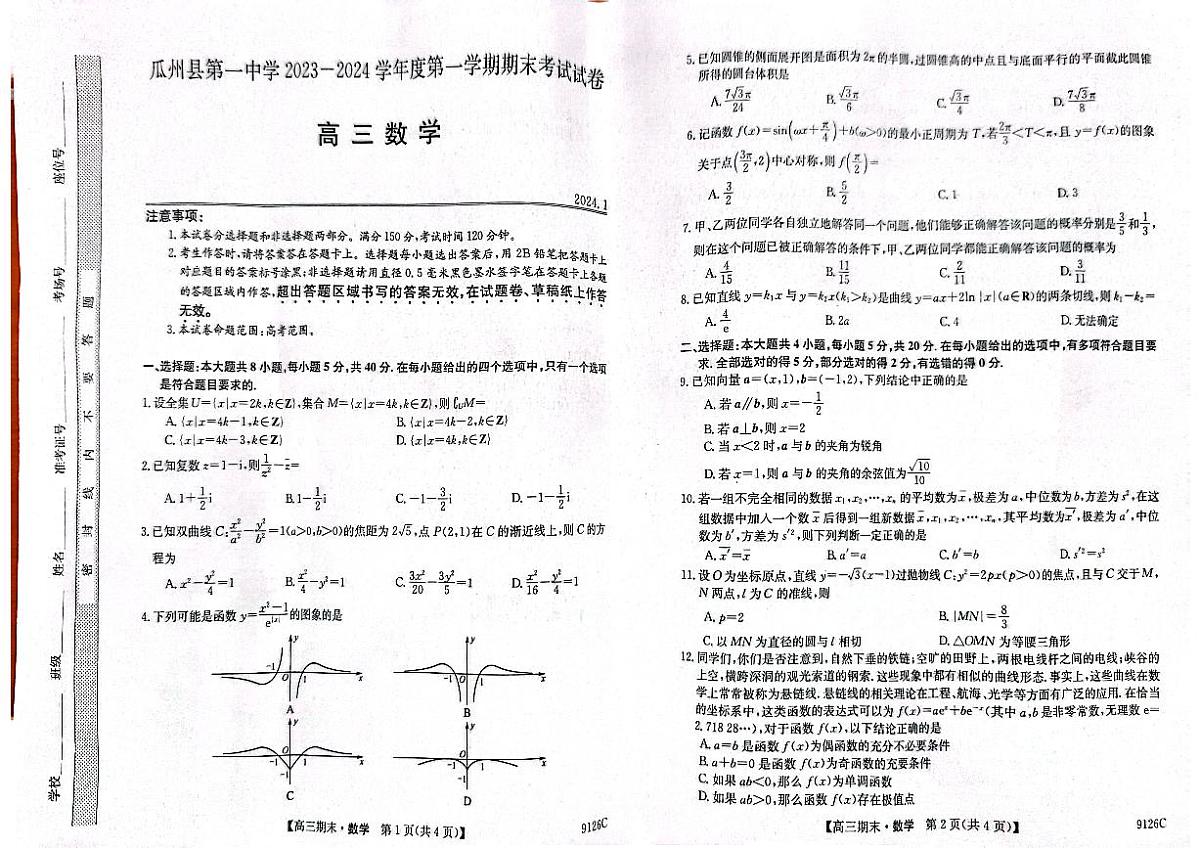 瓜州县第一中学2023-2024学年度第一学期期末考试试卷
高三数学
2024.1
注意事项：
1.本试卷分选择题和非选择题两部分。满分150分，考试时间120分钟。
2.考生作答时，请将答案答在答题卡上。选择题每小题选出答案后，用2B铅笔把答题卡上
对应题目的答案标号涂黑；非选择题请用直径0.5毫米黑色墨水签字笔在答题卡上各题
的答题区域内作答，超出答题区域书写的答案无效，在试题卷、草稿纸上作答
无效。
3.本试卷命题范围：高考范围。
一、选择题：本大题共8小题，每小题5分，共40分.在每小题给出的四个选项中，只有一个选项
是符合题目要求的.
1.设全集U={x|x=2k,k∈Z},集合M={x|x=4k,k∈Z},则∁UM=
A.{x|x=4k-1,k∈Z} B.{x|x=4k-2,k∈Z}
C.{x|x=4k-3,k∈Z} D.{x|x=4k,k∈Z}
2.已知复数z=1-i,则1/z²-z̄=
A.1+1/2i B.1-1/2i C.-1-3/2i D.-1-1/2i
3.已知双曲线C:x²/a²-y²/b²=1(a>0,b>0)的焦距为2√5,点P(2,1)在C的渐近线上,则C的方
程为
A.x²-y²/4=1 B.x²/4-y²=1 C.3x²/20-3y²/5=1 D.x²/16-y²/4=1
4.下列可能是函数y=(x²-1)/e^|x|的图象的是
y -1 O 1 x
A
y -1 O 1 x
B
y O -1 1 x -1
C
y O -1 1 x -1
D
【高三期末·数学 第1页(共4页)】 9126C
5.已知圆锥的侧面展开图是面积为2π的半圆,过圆锥高的中点且与底面平行的平面截此圆锥
所得的圆台体积是
A.7√3π/24 B.√3π/6 C.√3π/4 D.7√3π/8
6.记函数f(x)=sin(ωx+π/4)+b(ω>0)的最小正周期为T,若2π/3<T<π,且y=f(x)的图象
关于点(3π/2,2)中心对称,则f(π/2)=
A.3/2 B.5/2 C.1 D.3
7.甲、乙两位同学各自独立地解答同一个问题,他们能够正确解答该问题的概率分别是3/5和1/3,
则在这个问题已被正确解答的条件下,甲、乙两位同学都能正确解答该问题的概率为
A.4/15 B.11/15 C.2/11 D.3/11
8.已知直线y=k₁x与y=k₂x(k₁>k₂)是曲线y=ax+2ln|x|(a∈R)的两条切线,则k₁-k₂=
A.4/e B.2a C.4 D.无法确定
二、选择题：本大题共4小题,每小题5分,共20分.在每小题给出的选项中,有多项符合题目要
求.全部选对的得5分,部分选对的得2分,有选错的得0分.
9.已知向量a=(x,1),b=(-1,2),下列结论中正确的是
A.若a∥b,则x=-1/2
B.若a⊥b,则x=2
C.当x<2时,a与b的夹角为锐角
D.若x=1,则a与b的夹角的余弦值为√10/10
10.若一组不完全相同的数据x₁,x₂,…,xₙ的平均数为x̄,极差为a,中位数为b,方差为s²,在这
组数据中加入一个数x̄后得到一组新数据x̄,x₁,x₂,…,xₙ,其平均数为x̄′,极差为a′,中位
数为b′,方差为s′²,则下列判断一定正确的是
A.x̄′=x̄ B.a′=a C.b′=b D.s′²=s²
11.设O为坐标原点,直线y=-√3(x-1)过抛物线C:y²=2px(p>0)的焦点,且与C交于M,
N两点,l为C的准线,则
A.p=2 B.|MN|=8/3
C.以MN为直径的圆与l相切 D.△OMN为等腰三角形
12.同学们,你们是否注意到,自然下垂的铁链;空旷的田野上,两根电线杆之间的电线;峡谷的
上空,横跨深洞的观光索道的钢索.这些现象中都有相似的曲线形态.事实上,这些曲线在数
学上常常被称为悬链线.悬链线的相关理论在工程、航海、光学等方面有广泛的应用.在恰当
的坐标系中,这类函数的表达式可以为f(x)=aeˣ+be⁻ˣ(其中a,b是非零常数,无理数e=
2.718 28…),对于函数f(x),以下结论正确的是
A.a=b是函数f(x)为偶函数的充分不必要条件
B.a+b=0是函数f(x)为奇函数的充要条件
C.如果ab<0,那么f(x)为单调函数
D.如果ab>0,那么函数f(x)存在极值点
【高三期末·数学 第2页(共4页)】 9126C
学校 班级 姓名 准考证号 考场号 座位号
密 封 线 内 不 要 答 题